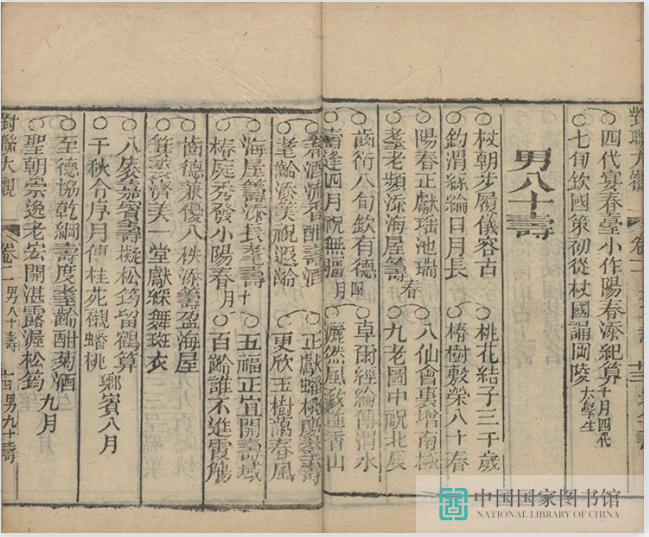 對聯大觀
四代宴春臺小作陽春添紀算 十月四代太學生
七旬欽國策初從杖國誦岡陵
男八十壽
杖朝步履儀容古 桃花結子三千歲
釣渭絲綸日月長 椿樹敷榮八十春
陽春正獻瑤池瑞 八仙會裏增南極
耋老頻添海屋籌 春 九老圖中祝北辰
齒衔八旬欽有德 卓爾經綸傳渭水
壽逢四月祝無疆 四月 灑然風致追香山
酒流香酣壽酒 正獻蟠桃慶耋壽
耄齡添美祝遐齡 更欣玉樹萬春風
海屋籌添長耄壽 十 五福正宜開壽域
椿庭秀發小陽春 月 百齡誰不進霞觴
齒德兼優八秩添籌盈海屋
箕裘濟美一堂獻綵舞斑衣
八袠嘉賓壽擬松筠留鶴算
千秋令序月傳桂苑襯蟠桃 鄉賓八月
至德協乾綱壽度耋齡酣菊酒
聖朝崇逸老宏開湛露渥松筠 九月
對聯大觀 卷二 男八十壽 男九十壽
中国国家图书馆
NATIONAL LIBRARY OF CHINA